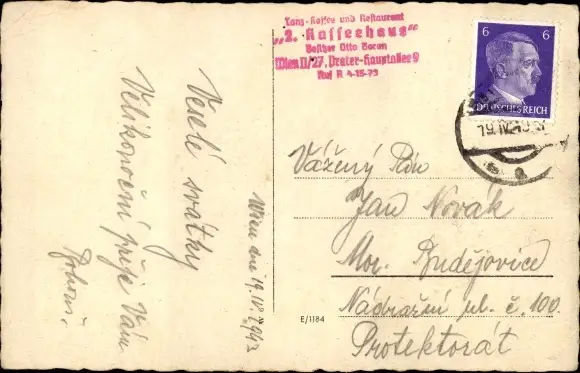 Tanz-Kaffee und Restaurant
„2. Kaffeehaus"
Besitzer Otto Baran
Wien II/27, Prater-Hauptallee 9
Ruf R 4-15-73
6 6
DEUTSCHES REICH
19.IV.
Veselé svátky
Velikonoční přeje Vám
Wien dne 19.IV.1943
Vážený Pán
Jan Novák
Mor. Budějovice
Nádražní ul. č. 100.
Protektorát
E/1184